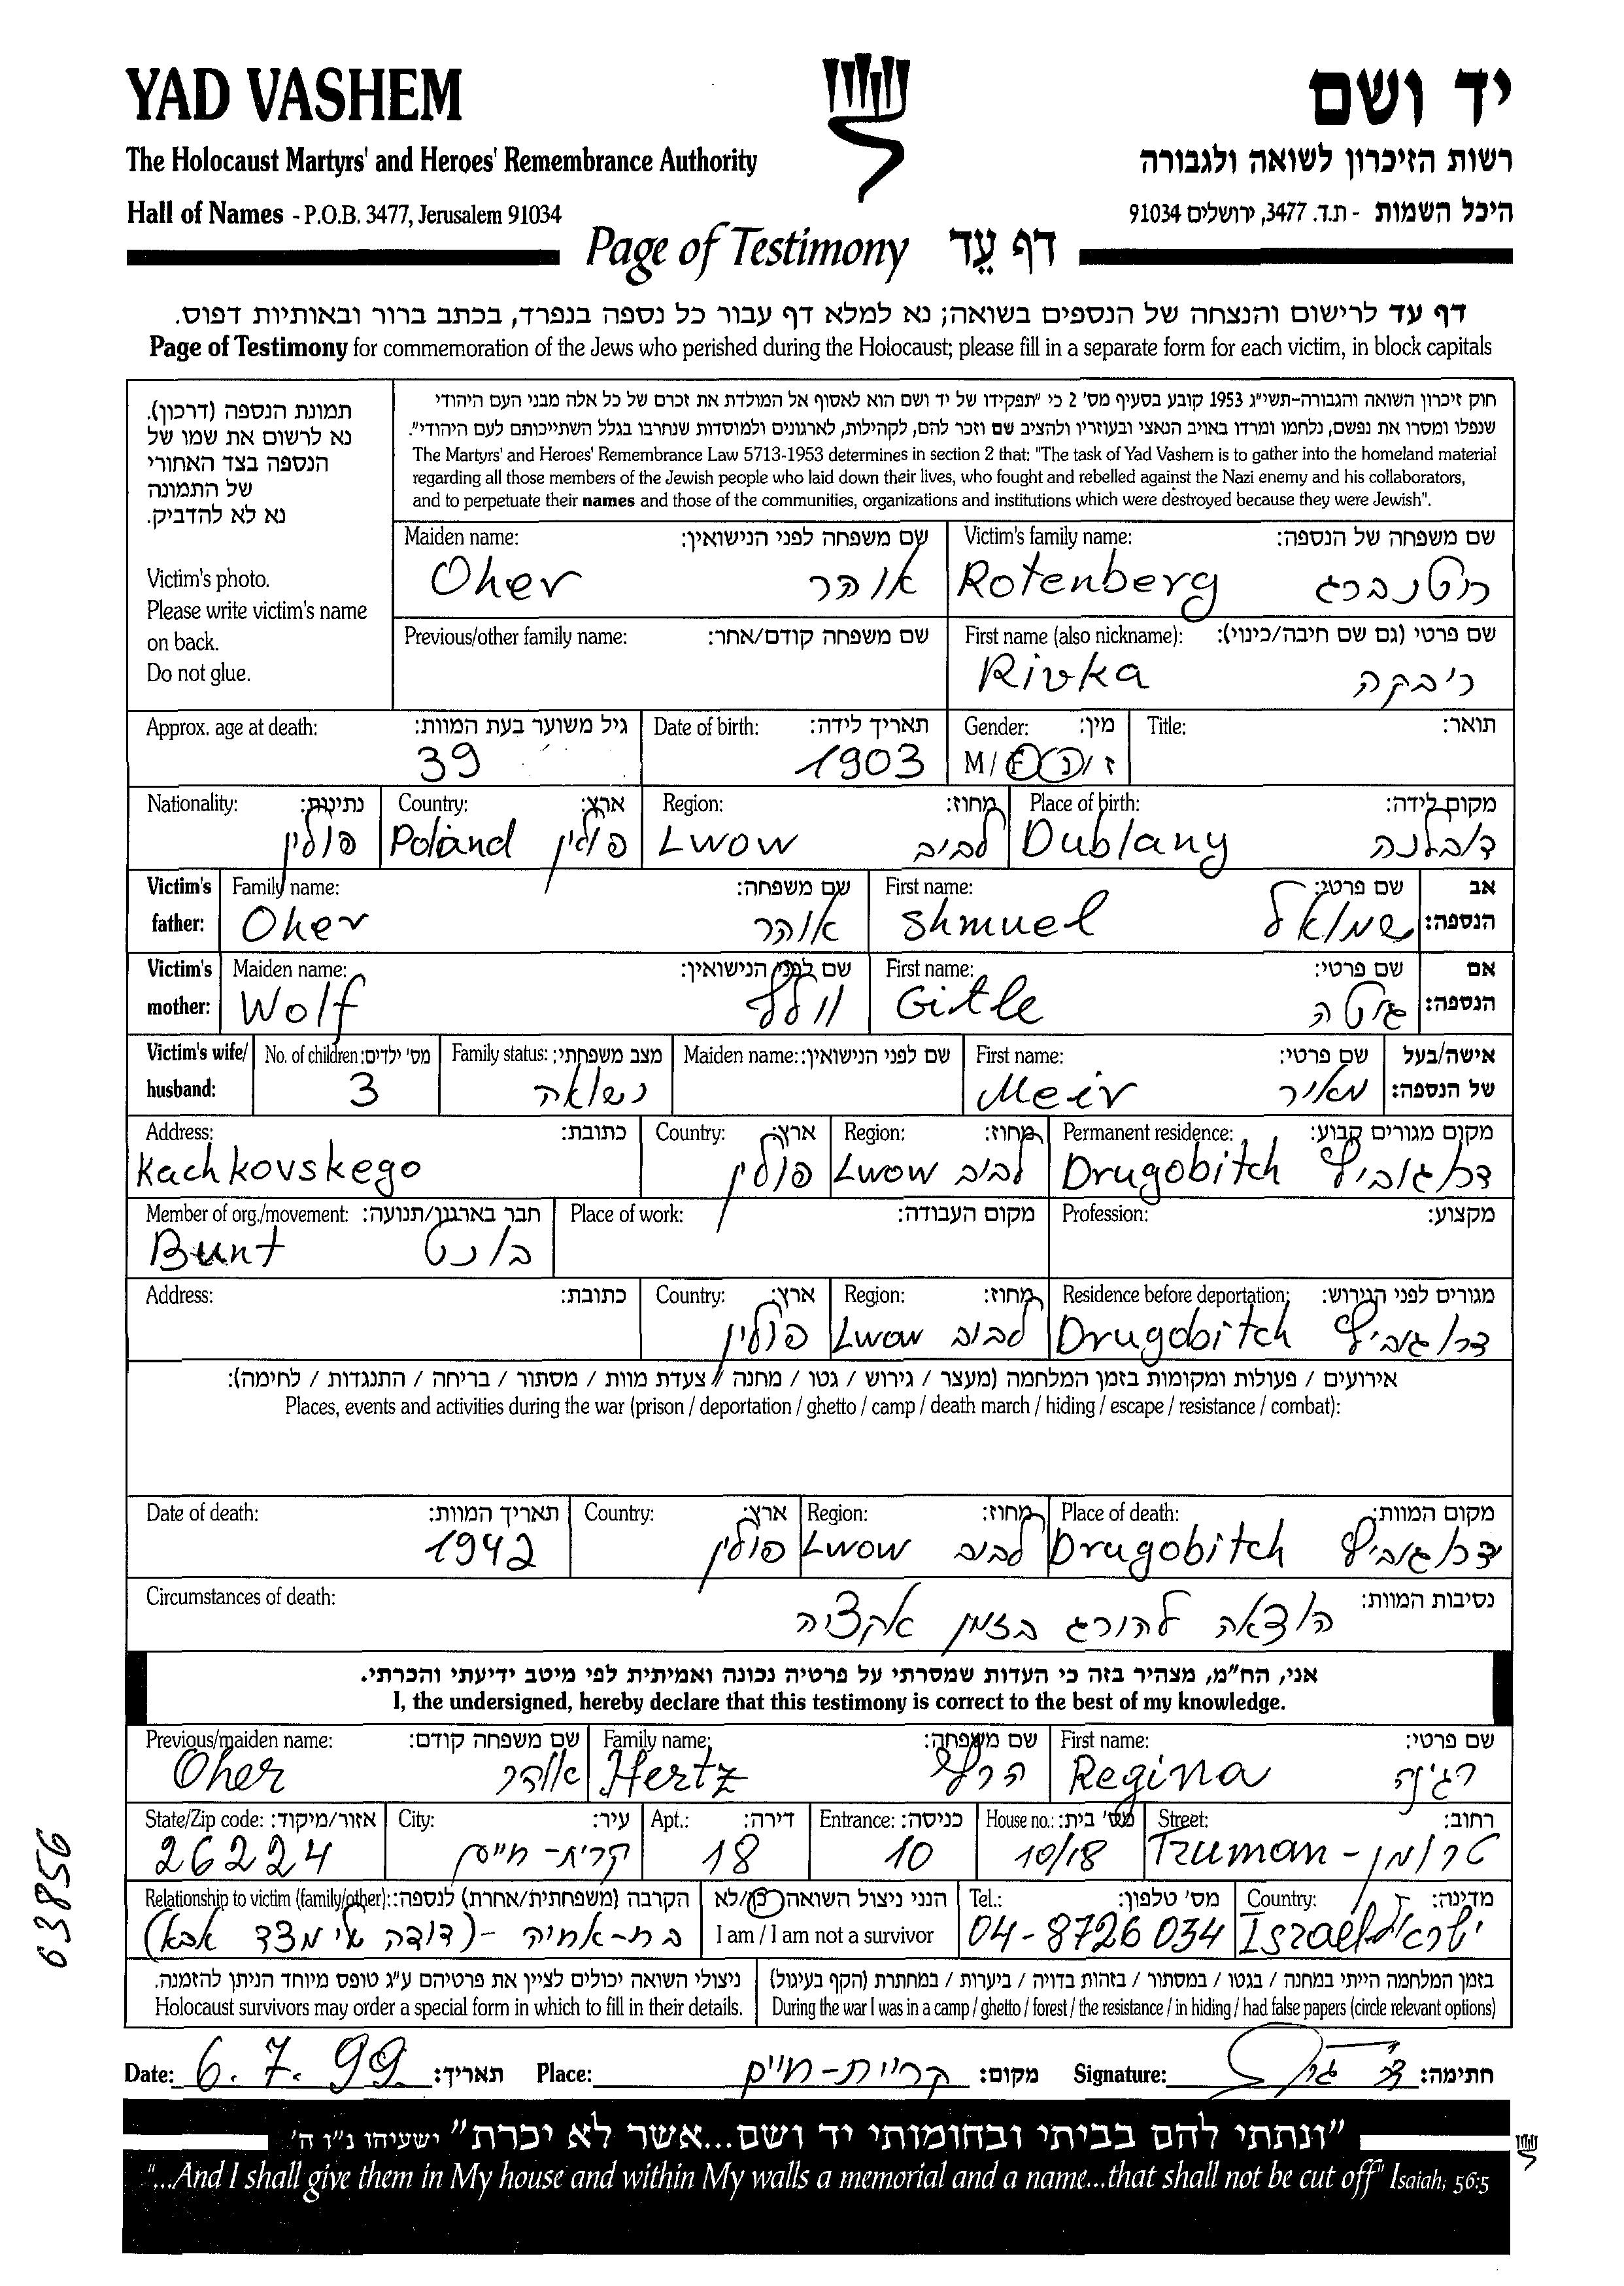 YAD VASHEM
יד ושם
The Holocaust Martyrs' and Heroes' Remembrance Authority
רשות הזיכרון לשואה ולגבורה
Hall of Names - P.O.B. 3477, Jerusalem 91034
היכל השמות - ת.ד. 3477, ירושלים 91034
Page of Testimony דף עֵד
דף עד לרישום והנצחה של הנספים בשואה; נא למלא דף עבור כל נספה בנפרד, בכתב ברור ובאותיות דפוס.
Page of Testimony for commemoration of the Jews who perished during the Holocaust; please fill in a separate form for each victim, in block capitals
תמונת הנספה (דרכון).
נא לרשום את שמו של
הנספה בצד האחורי
של התמונה
נא לא להדביק.
Victim's photo.
Please write victim's name
on back.
Do not glue.
חוק זיכרון השואה והגבורה-תשי"ג 1953 קובע בסעיף מס' 2 כי "תפקידו של יד ושם הוא לאסוף אל המולדת את זכרם של כל אלה מבני העם היהודי
שנפלו ומסרו את נפשם, נלחמו ומרדו באויב הנאצי ובעוזריו ולהציב שם וזכר להם, לקהילות, לארגונים ולמוסדות שנחרבו בגלל השתייכותם לעם היהודי".
The Martyrs' and Heroes' Remembrance Law 5713-1953 determines in section 2 that: "The task of Yad Vashem is to gather into the homeland material
regarding all those members of the Jewish people who laid down their lives, who fought and rebelled against the Nazi enemy and his collaborators,
and to perpetuate their names and those of the communities, organizations and institutions which were destroyed because they were Jewish".
Maiden name: שם משפחה לפני הנישואין:
Oher אוהר
Victim's family name: שם משפחה של הנספה:
Rotenberg רוטנברג
Previous/other family name: שם משפחה קודם/אחר:
First name (also nickname): שם פרטי (גם שם חיבה/כינוי):
Rivka ריבקה
Approx. age at death: גיל משוער בעת המוות:
39
Date of birth: תאריך לידה:
1903
Gender: מין:
M/F ז/נ
Title: תואר:
Nationality: נתינות:
פולין
Country: ארץ:
Poland פולין
Region: מחוז:
Lwow לבוב
Place of birth: מקום לידה:
Dublany דובלנה
Victim's father: אב הנספה:
Family name: שם משפחה:
Oher אוהר
First name: שם פרטי:
Shmuel שמואל
Victim's mother: אם הנספה:
Maiden name: שם לפני הנישואין:
Wolf וולף
First name: שם פרטי:
Gitle גיטלה
Victim's wife/ husband: אישה/בעל של הנספה:
No. of children: מס' ילדים:
3
Family status: מצב משפחתי:
נשואה
Maiden name: שם לפני הנישואין:
First name: שם פרטי:
Meir מאיר
Address: כתובת:
Kachkovskego
Country: ארץ:
פולין
Region: מחוז:
Lwow לבוב
Permanent residence: מקום מגורים קבוע:
Drugobitch דרוגוביץ
Member of org./movement: חבר בארגון/תנועה:
Bunt בונט
Place of work: מקום העבודה:
Profession: מקצוע:
Address: כתובת:
Country: ארץ:
פולין
Region: מחוז:
Lwow לבוב
Residence before deportation: מגורים לפני הגירוש:
Drugobitch דרוגוביץ
אירועים / פעולות ומקומות בזמן המלחמה (מעצר / גירוש / גטו / מחנה / צעדת מוות / מסתור / בריחה / התנגדות / לחימה):
Places, events and activities during the war (prison / deportation / ghetto / camp / death march / hiding / escape / resistance / combat):
Date of death: תאריך המוות:
1942
Country: ארץ:
פולין
Region: מחוז:
Lwow לבוב
Place of death: מקום המוות:
Drugobitch דרוגוביץ
Circumstances of death: נסיבות המוות:
הוצאה להורג בזמן אקציה
אני, הח"מ, מצהיר בזה כי העדות שמסרתי על פרטיה נכונה ואמיתית לפי מיטב ידיעתי והכרתי.
I, the undersigned, hereby declare that this testimony is correct to the best of my knowledge.
Previous/maiden name: שם משפחה קודם:
Oher אוהר
Family name: שם משפחה:
Hertz הרץ
First name: שם פרטי:
Regina רגינה
State/Zip code: אזור/מיקוד:
26224
City: עיר:
קרית-חיים
Apt.: דירה:
18
Entrance: כניסה:
10
House no.: מס' בית:
10/18
Street: רחוב:
Truman - טרומן
Relationship to victim (family/other): הקרבה (משפחתית/אחרת) לנספה:
בת-אחיה -(דודה שלי מצד אבא)
הנני ניצול השואה כן/לא
I am / I am not a survivor
Tel.: מס' טלפון:
04-8726034
Country: מדינה:
Israel ישראל
ניצולי השואה יכולים לציין את פרטיהם ע"ג טופס מיוחד הניתן להזמנה.
Holocaust survivors may order a special form in which to fill in their details.
בזמן המלחמה הייתי במחנה / בגטו / במסתור / בזהות בדויה / ביערות / במחתרת (הקף בעיגול)
During the war I was in a camp / ghetto / forest / the resistance / in hiding / had false papers (circle relevant options)
Date: 6.7.99 תאריך: Place: קריית-חיים מקום: Signature: חתימה:
"ונתתי להם בביתי ובחומותי יד ושם...אשר לא יכרת" ישעיהו נ"ו ה'
"...And I shall give them in My house and within My walls a memorial and a name...that shall not be cut off" Isaiah, 56:5
63856